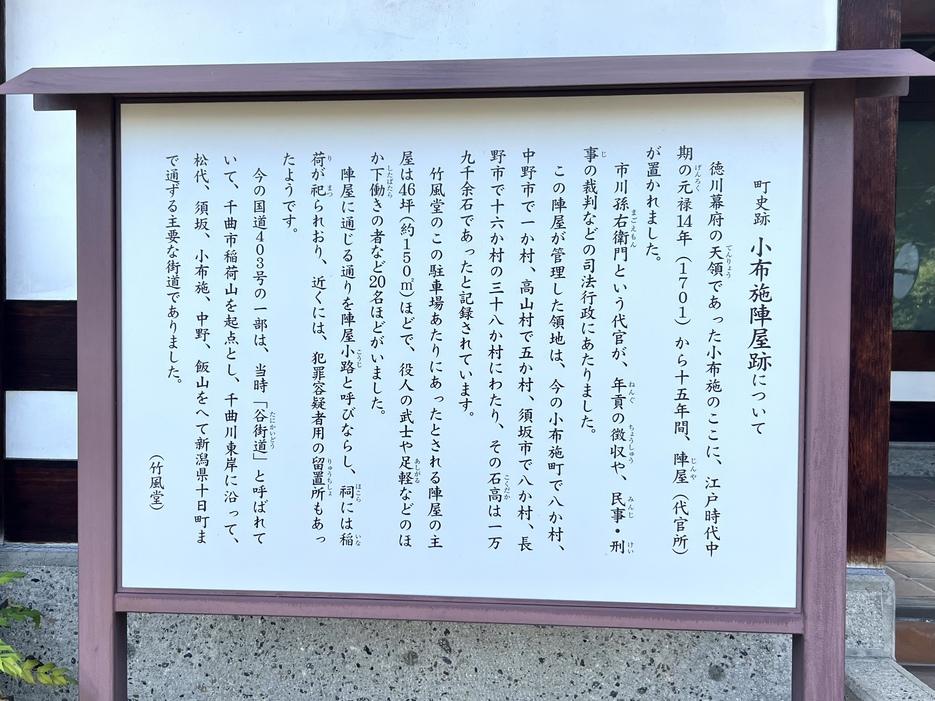 町史跡 小布施陣屋跡について
徳川幕府の天領であった小布施のここに、江戸時代中
期の元禄14年（1701）から十五年間、陣屋（代官所）
が置かれました。
市川孫右衛門という代官が、年貢の徴収や、民事・刑
事の裁判などの司法行政にあたりました。
この陣屋が管理した領地は、今の小布施町で八か村、
中野市で一か村、高山村で五か村、須坂市で八か村、長
野市で十六か村の三十八か村にわたり、その石高は一万
九千余石であったと記録されています。
竹風堂のこの駐車場あたりにあったとされる陣屋の主
屋は46坪（約150㎡）ほどで、役人の武士や足軽などのほ
か下働きの者など20名ほどがいました。
陣屋に通じる通りを陣屋小路と呼びならし、祠には稲
荷が祀られおり、近くには、犯罪容疑者用の留置所もあっ
たようです。
今の国道403号の一部は、当時「谷街道」と呼ばれて
いて、千曲市稲荷山を起点とし、千曲川東岸に沿って、
松代、須坂、小布施、中野、飯山をへて新潟県十日町ま
で通ずる主要な街道でありました。
（竹風堂）